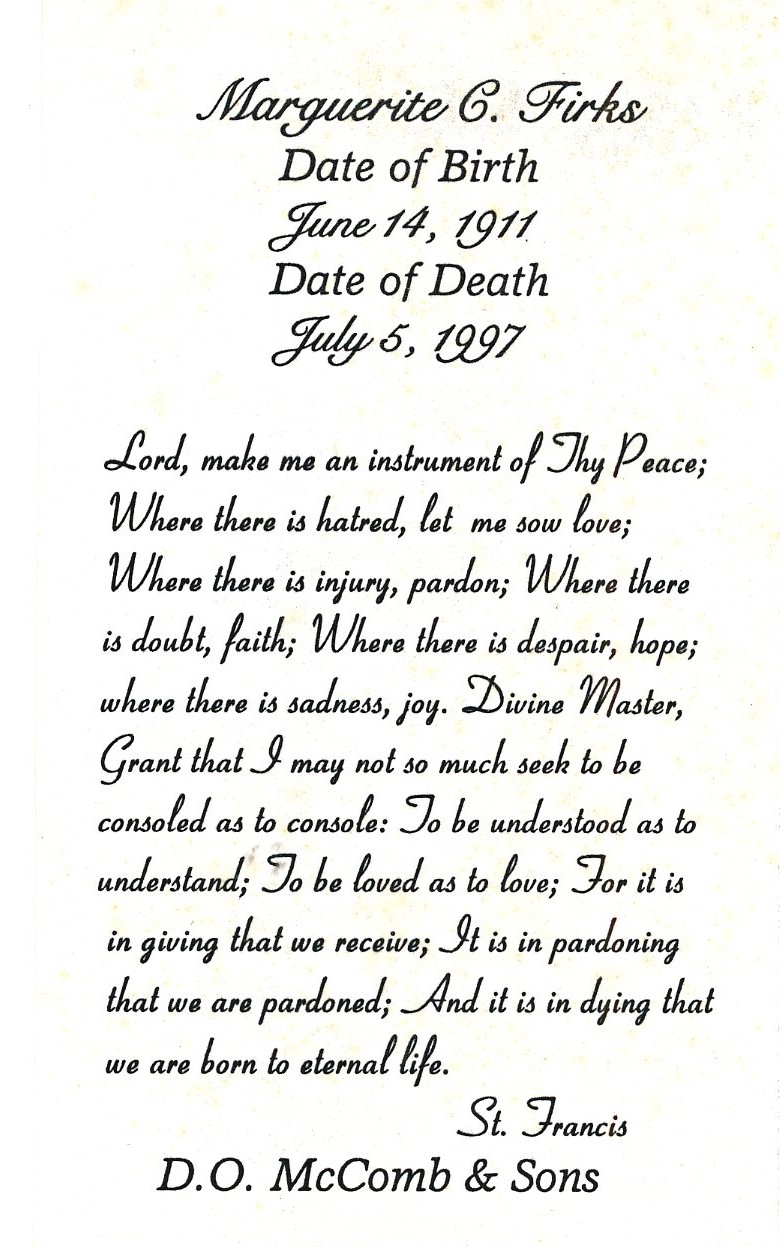 Marguerite C. Firks
Date of Birth
June 14, 1911
Date of Death
July 5, 1997
Lord, make me an instrument of Thy Peace;
Where there is hatred, let me sow love;
Where there is injury, pardon; Where there
is doubt, faith; Where there is despair, hope;
where there is sadness, joy. Divine Master,
Grant that I may not so much seek to be
consoled as to console: To be understood as to
understand; To be loved as to love; For it is
in giving that we receive; It is in pardoning
that we are pardoned; And it is in dying that
we are born to eternal life.
St. Francis
D.O. McComb & Sons